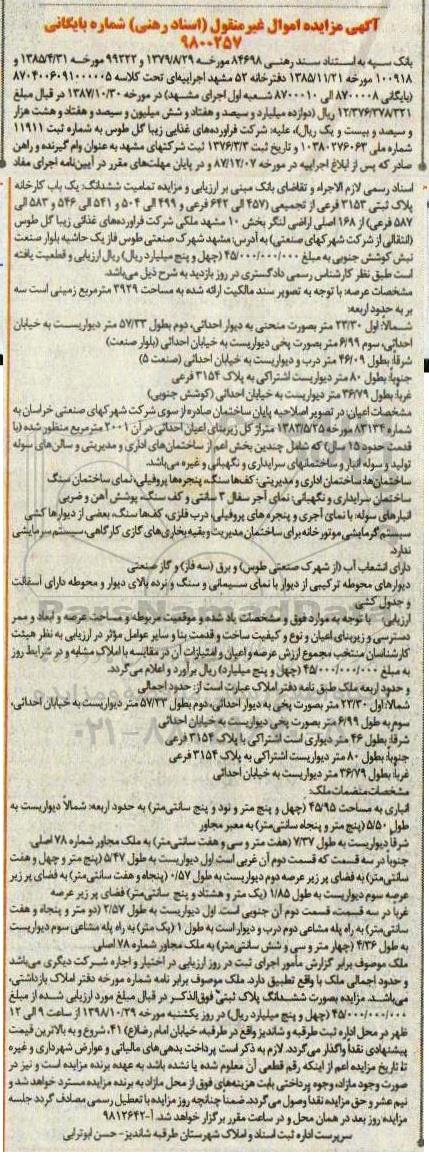 آگهی مزایده اموال غیرمنقول (اسناد رهنی) شماره بایگانی
۹۸۰۰۲۵۷
بانک سپه به استناد سند رهنی ۸۴۶۹۸ مورخه ۱۳۷۹/۸/۲۹ و ۹۹۲۲۲ مورخه ۱۳۸۵/۴/۳۱ و
۱۰۰۹۱۸ مورخه ۱۳۸۵/۱۱/۲۱ دفترخانه ۵۲ مشهد اجراییه‌ای تحت کلاسه ۸۷۰۴۰۰۶۰۹۱۰۰۰۰۰۵
(بایگانی ۸۷۰۰۰۰۸ الی ۸۷۰۰۰۱۰ شعبه اول اجرای مشهد) در مورخه ۱۳۸۷/۱۰/۳۰ در قبال مبلغ
۱۲/۳۷۶/۳۷۸/۳۲۱ ریال (دوازده میلیارد و سیصد و هفتاد و شش میلیون و سیصد و هفتاد و هشت هزار
و سیصد و بیست و یک ریال)، علیه: شرکت فراورده‌های غذایی زیبا گل طوس به شماره ثبت ۱۱۹۱۱
شماره ملی ۱۰۳۸۰۲۷۶۰۶۳ و تاریخ ثبت ۱۳۷۶/۳/۳ ثبت شرکتهای مشهد به عنوان وام گیرنده و راهن
صادر که پس از ابلاغ اجراییه در مورخه ۸۷/۱۲/۰۷ و در پایان مهلت‌های مقرر در آیین‌نامه اجرای مفاد
اسناد رسمی لازم الاجراء و تقاضای بانک مبنی بر ارزیابی و مزایده تمامیت ششدانگ: یک باب کارخانه
پلاک ثبتی ۳۱۵۳ فرعی از تجمیعی (۴۵۷ الی ۶۴۲ فرعی و ۴۹۹ الی ۵۰۴ و ۵۴۱ الی ۵۴۶ و ۵۸۳ الی
۵۸۷ فرعی) از ۱۶۸ اصلی اراضی لنگر بخش ۱۰ مشهد ملکی شرکت فراورده‌های غذائی زیبا گل طوس
(انتقالی از شرکت شهرکهای صنعتی) به آدرس: مشهد شهرک صنعتی طوس فاز یک حاشیه بلوار صنعت
نبش کوشش جنوبی به مبلغ ۴۵/۰۰۰/۰۰۰/۰۰۰ (چهل و پنج میلیارد ریال) ریال ارزیابی و قطعیت یافته
است طبق نظر کارشناس رسمی دادگستری در روز بازدید به شرح ذیل می‌باشد.
مشخصات عرصه: با توجه به تصویر سند مالکیت ارائه شده به مساحت ۳۹۲۹ مترمربع زمینی است سه
بر به حدود اربعه:
شمالا: اول ۲۳/۳۰ متر بصورت منحنی به دیوار احداثی، دوم بطول ۵۷/۳۳ متر دیواریست به خیابان
احداثی، سوم ۶/۹۹ متر بصورت پخی دیواریست به خیابان احداثی (بلوار صنعت)
شرقاً: بطول ۴۶/۰۹ متر درب و دیواریست به خیابان احداثی (صنعت ۵)
جنوبا: بطول ۸۰ متر دیواریست اشتراکی به پلاک ۳۱۵۴ فرعی
غربا: بطول ۳۶/۷۹ متر دیواریست به خیابان احداثی (کوشش جنوبی)
مشخصات اعیان: در تصویر اصلاحیه پایان ساختمان صادره از سوی شرکت شهرکهای صنعتی خراسان به
شماره ۸۳۱۳۴ مورخه ۱۳۸۳/۵/۲۵ متراژ کل زیربنای اعیان احداثی در آن ۲۰۰۱ مترمربع منظور شده (با
قدمت حدود ۱۵ سال) که شامل چندین بخش اعم از ساختمان‌های اداری و مدیریتی و سالن‌های سوله
تولید و سوله انبار و ساختمانهای سرایداری و نگهبانی و غیره می‌باشد.
ساختمان‌ها: ساختمان اداری و مدیریتی: کف‌ها سنگ، پنجره‌ها پروفیلی، نمای ساختمان سنگ
ساختمان سرایداری و نگهبانی: نمای آجر سفال ۳ سانتی و کف سنگ، پوشش آهن و ضربی
انبارهای سوله: با نمای آجری و پنجره های پروفیلی، درب فلزی، کف‌ها سنگ، بعضی از دیوارها کشی
سیستم گرمایشی موتورخانه برای ساختمان مدیریت و بقیه بخاری‌های گازی کارگاهی، سیستم سرمایشی
ندارد.
دارای انشعاب آب (از شهرک صنعتی طوس) و برق (سه فاز) و گاز صنعتی
دیوارهای محوطه ترکیبی از دیوار با نمای سیمانی و سنگ و نرده بالای دیوار و محوطه دارای آسفالت
و جدول کشی
ارزیابی: با توجه به موارد فوق و مشخصات یاد شده و موقعیت مربوطه و مساحت عرصه و ابعاد و ممر
دسترسی و زیربنای اعیان و نوع و کیفیت ساخت و قدمت بنا و سایر عوامل مؤثر در ارزیابی به نظر هیئت
کارشناسان منتخب مجموع ارزش عرصه و اعیان و امتیازات آن در مقایسه با املاک مشابه و در شرایط روز
به مبلغ ۴۵/۰۰۰/۰۰۰/۰۰۰ (چهل و پنج میلیارد) ریال برآورد و اعلام می‌گردد.
و حدود اربعه ملک طبق نامه دفتر املاک عبارت است از: حدود اجمالی
شمالا: اول ۲۲/۳۰ متر بصورت پخی به دیوار احداثی، دوم بطول ۵۷/۳۳ متر دیواریست به خیابان احداثی،
سوم به طول ۶/۹۹ متر بصورت پخی دیواریست به خیابان احداثی
شرقا: بطول ۴۶ متر دیواری است اشتراکی با پلاک ۳۱۵۴ فرعی
جنوبا: بطول ۸۰ متر دیواریست اشتراکی به پلاک ۳۱۵۴ فرعی
غربا: بطول ۳۶/۷۹ متر دیواریست به خیابان احداثی
مشخصات منضمات ملک:
انباری به مساحت ۴۵/۹۵ (چهل و پنج متر و نود و پنج سانتی‌متر) به حدود اربعه: شمالاً دیواریست به
طول ۵/۵۰ (پنج متر و پنجاه سانتی‌متر) به معبر مجاور
شرقاً دیواریست به طول ۷/۳۷ (هفت متر و سی و هفت سانتی‌متر) به ملک مجاور شماره ۷۸ اصلی
جنوباً در سه قسمت که قسمت دوم آن غربی است اول دیواریست به طول ۵/۴۷ (پنج متر و چهل و هفت
سانتی‌متر) به فضای پر زیر عرصه دوم دیواریست به طول ۰/۵۷ (پنجاه و هفت سانتی‌متر) به فضای پر زیر
عرصه سوم دیواریست به طول ۱/۸۵ (یک متر و هشتاد و پنج سانتی‌متر) فضای پر زیر عرصه
غربا در سه قسمت، قسمت دوم آن جنوبی است. اول دیواریست به طول ۲/۵۷ (دو متر و پنجاه و هفت
سانتی‌متر) به راه پله مشاعی دوم درب و دیوار است به طول ۱ (یک متر) به راه پله مشاعی سوم دیواریست
به طول ۴/۳۶ (چهار متر و سی و شش سانتی‌متر) به ملک مجاور شماره ۷۸ اصلی
ملک موصوف برابر گزارش مأمور اجرای ثبت در روز ارزیابی در اختیار و اجاره شرکت دیگری می‌باشد
و حدود اجمالی ملک با واقع تطبیق دارد. ملک موصوف برابر نامه شماره مورخه دفتر املاک بازداشتی،
می‌باشد. مزایده بصورت ششدانگ پلاک ثبتی فوق‌الذکر در قبال مبلغ مورد ارزیابی شده از مبلغ
۴۵/۰۰۰/۰۰۰/۰۰۰ (چهل و پنج میلیارد) ریال در روز یکشنبه مورخه ۱۳۹۸/۱۰/۲۹ از ساعت ۹ الی ۱۲
ظهر در محل اداره ثبت طرقبه و شاندیز واقع در طرقبه، خیابان امام رضا(ع) ۴۱، شروع و به بالاترین قیمت
پیشنهادی نقدا واگذار می‌گردد. لازم به ذکر است پرداخت بدهی‌های مالیاتی و عوارض شهرداری و غیره
تا تاریخ مزایده اعم از اینکه رقم قطعی آن معلوم شده یا نشده باشد به عهده برنده مزایده است و نیز در
صورت وجود مازاد، وجوه پرداختی بابت هزینه‌های فوق از محل مازاد به برنده مزایده مسترد خواهد شد و
نیم عشر و حق مزایده نقدا وصول می‌گردد. ضمنا چنانچه روز مزایده با تعطیل رسمی مصادف گردد جلسه
مزایده روز بعد در همان محل و در ساعت مقرر برگزار خواهد شد. آ-۹۸۱۲۶۴۲
سرپرست اداره ثبت اسناد و املاک شهرستان طرقبه شاندیز- حسن ابوترابی